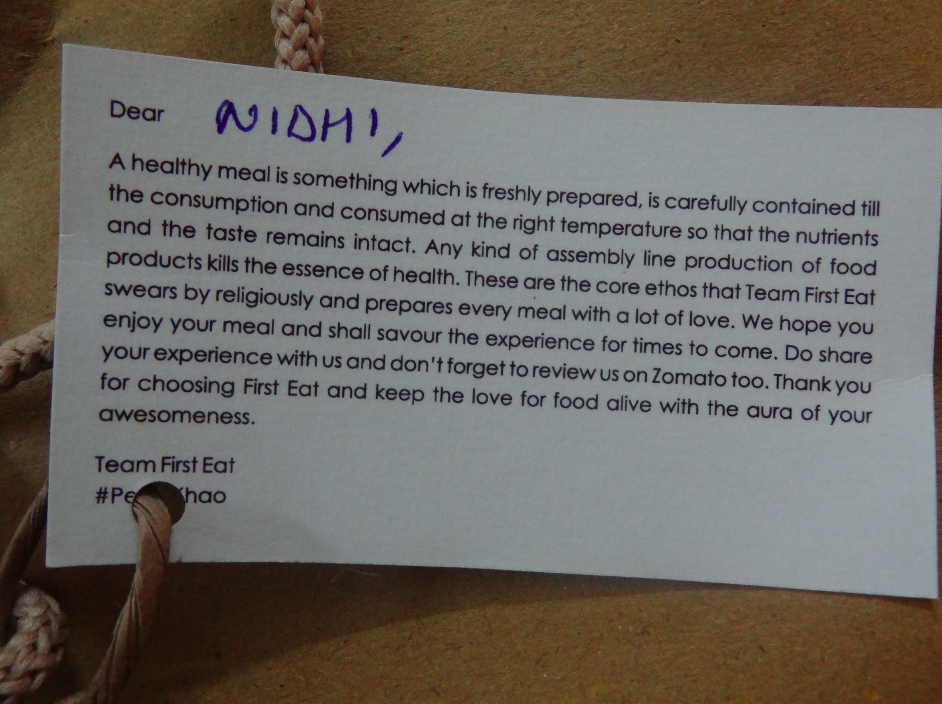 Dear NIDHI,
A healthy meal is something which is freshly prepared, is carefully contained till
the consumption and consumed at the right temperature so that the nutrients
and the taste remains intact. Any kind of assembly line production of food
products kills the essence of health. These are the core ethos that Team First Eat
swears by religiously and prepares every meal with a lot of love. We hope you
enjoy your meal and shall savour the experience for times to come. Do share
your experience with us and don't forget to review us on Zomato too. Thank you
for choosing First Eat and keep the love for food alive with the aura of your
awesomeness.
Team First Eat